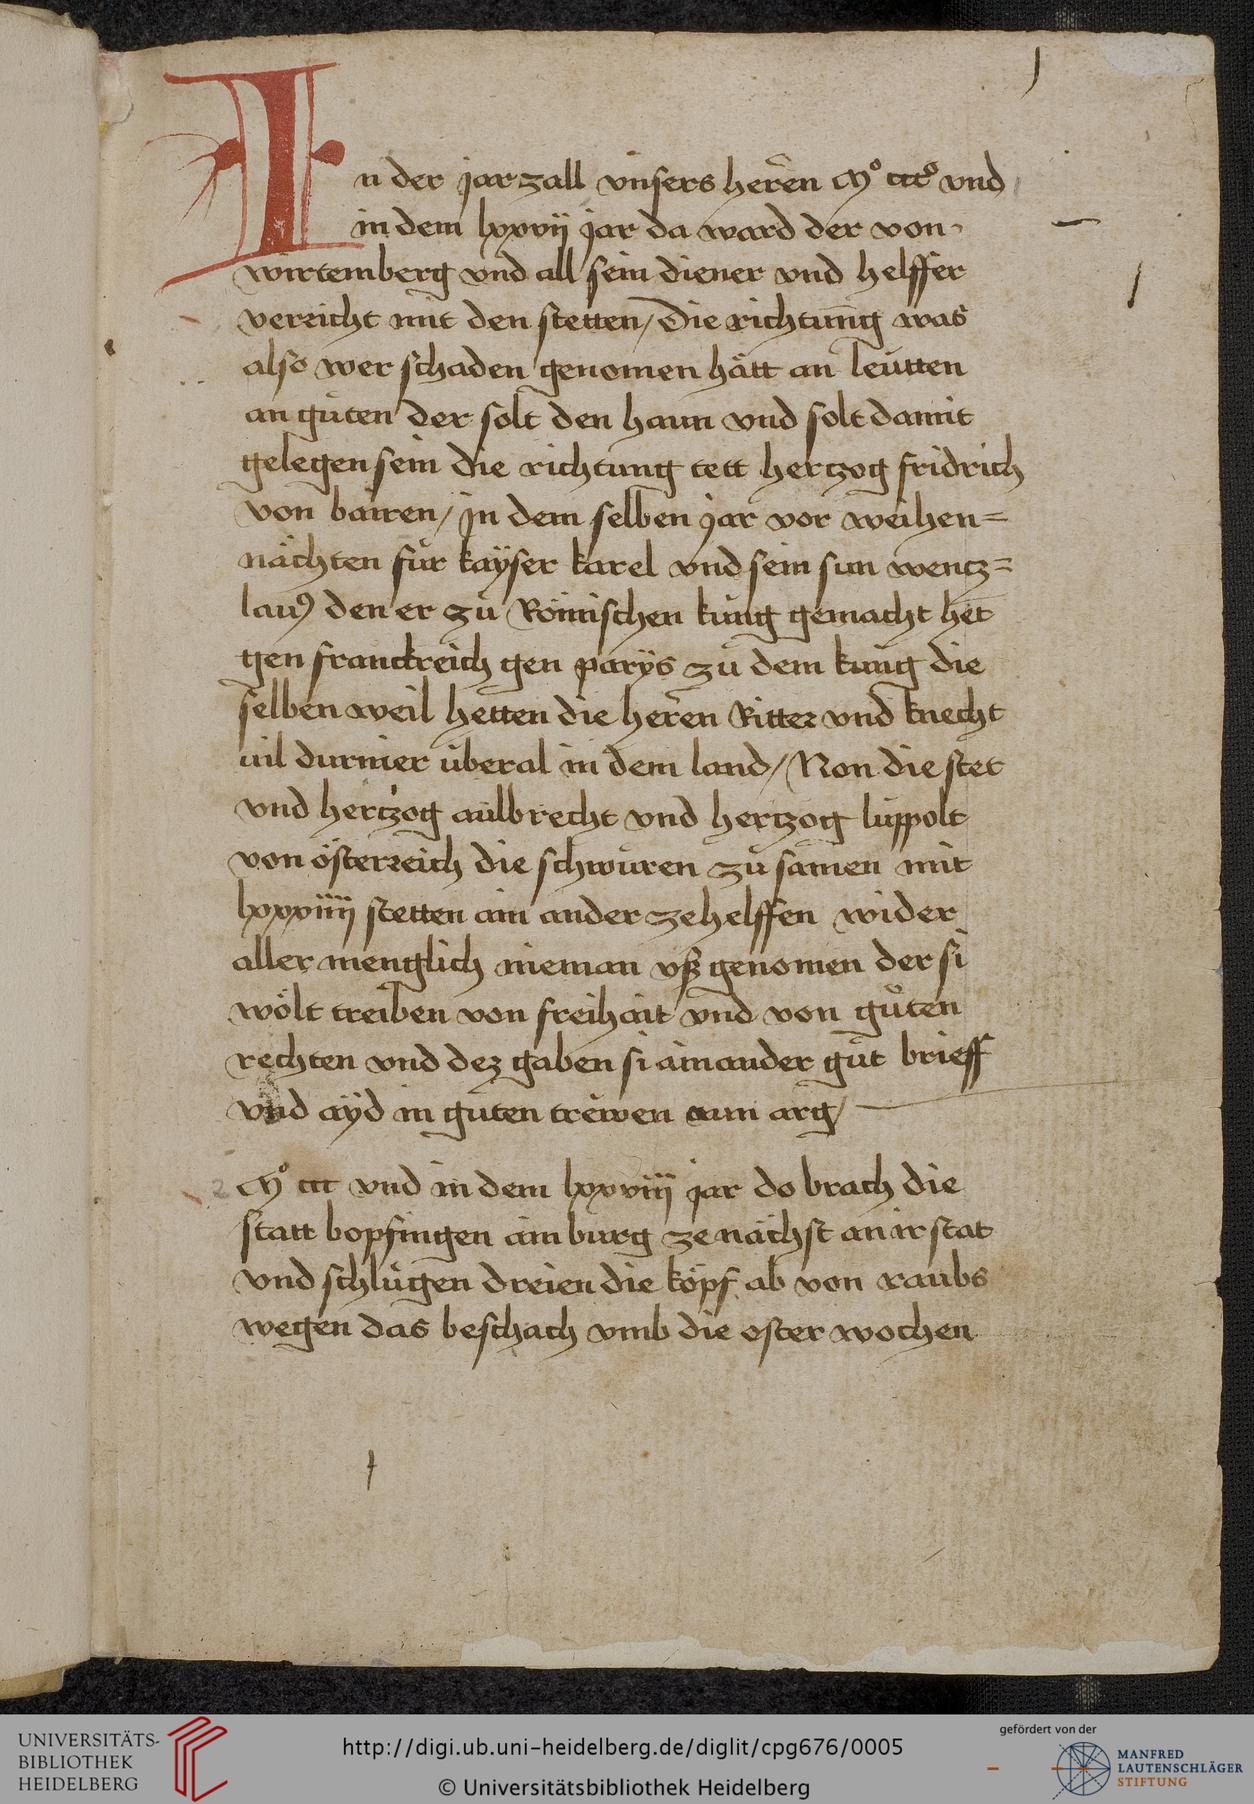 In der jarzall vnsers heren Mº cccº vnd
in dem lxxvij jar da ward der von
wirtemberg vnd all sein diener vnd helffer
vereicht mit den stetten / Die richtung was
also wer schaden genomen hätt an leütten
an gůten der solt den haun vnd solt damit
gelegen sein die richtung tett hertzog fridrich
von bairen / jn dem selben jar vor weihen=
nächten fůr kaÿser karel vnd sein sun wentz=
laus den er zů Römischen kúng gemacht het
gen franckreich gen parÿs zů dem kung die
selben weil hetten die heren Ritter vnd knecht
vil durnier úberal in dem land / Non die stet
vnd hertzog aulbrecht vnd hertzog lúppolt
von österreich die schwůren zů samen mit
lxxxiiii stetten ain ander ze helffen wider
aller menglich nieman vß genomen der si
wölt treiben von freihait vnd von gůten
rechten vnd dez gaben si ainander gůt brieff
vnd aÿd in gůten trewen aun arg /
2 Mº ccc vnd in dem lxxviii jar do brach die
statt bopfingen ain burg ze nächst an ir stat
vnd schlůgen dreien die köpf ab von raubs
wegen das beschach vmb die oster wochen
UNIVERSITÄTS-
BIBLIOTHEK
HEIDELBERG
http://digi.ub.uni-heidelberg.de/diglit/cpg676/0005
© Universitätsbibliothek Heidelberg
gefördert von der
MANFRED
LAUTENSCHLÄGER
STIFTUNG